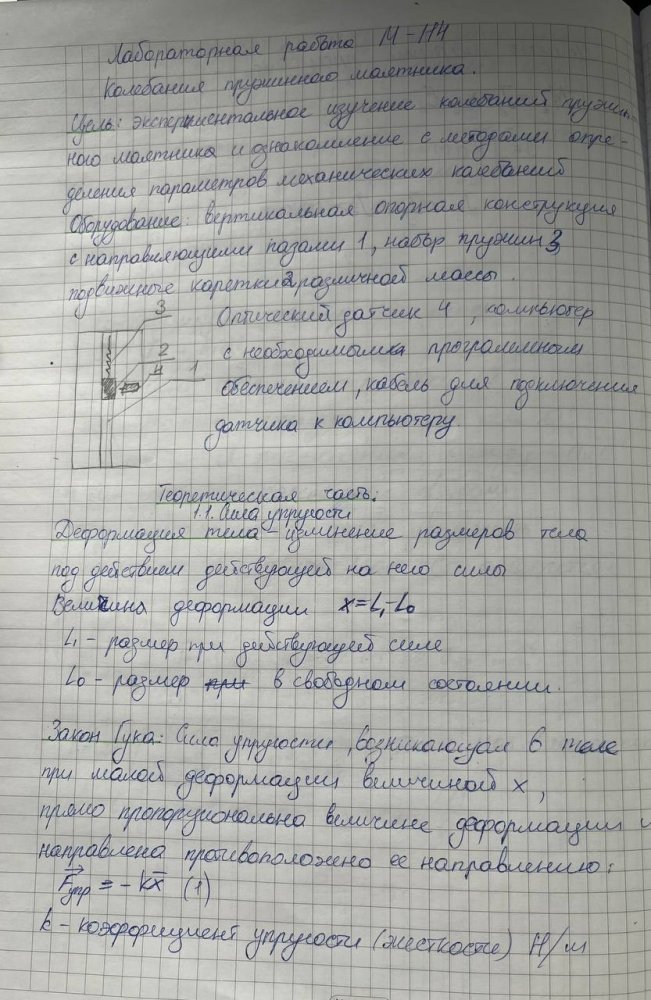 Лабораторная работа М-Н4
Колебания пружинного маятника.
Цель: экспериментальное изучение колебаний пружин-
ного маятника и ознакомление с методами опре-
деления параметров механических колебаний
Оборудование: вертикальная опорная конструкция
с направляющими пазами 1, набор пружин 3,
подвижные каретки 2 различной массы.
Оптический датчик 4, компьютер
с необходимым программным
обеспечением, кабель для подключения
датчика к компьютеру.
3
2
4 1
Теоретическая часть:
1.1. Сила упругости
Деформация тела - изменение размеров тела
под действием действующей на него силы
Величина деформации x = L₁-L₀
L₁ - размер при действующей силе
L₀ - размер при в свободном состоянии.
Закон Гука: Сила упругости, возникающая в теле
при малой деформации величиной x,
прямо пропорциональна величине деформации и
направлена противоположено ее направлению:
F⃗упр = - kx̄ (1)
k - коэффициент упругости (жесткости) Н/м